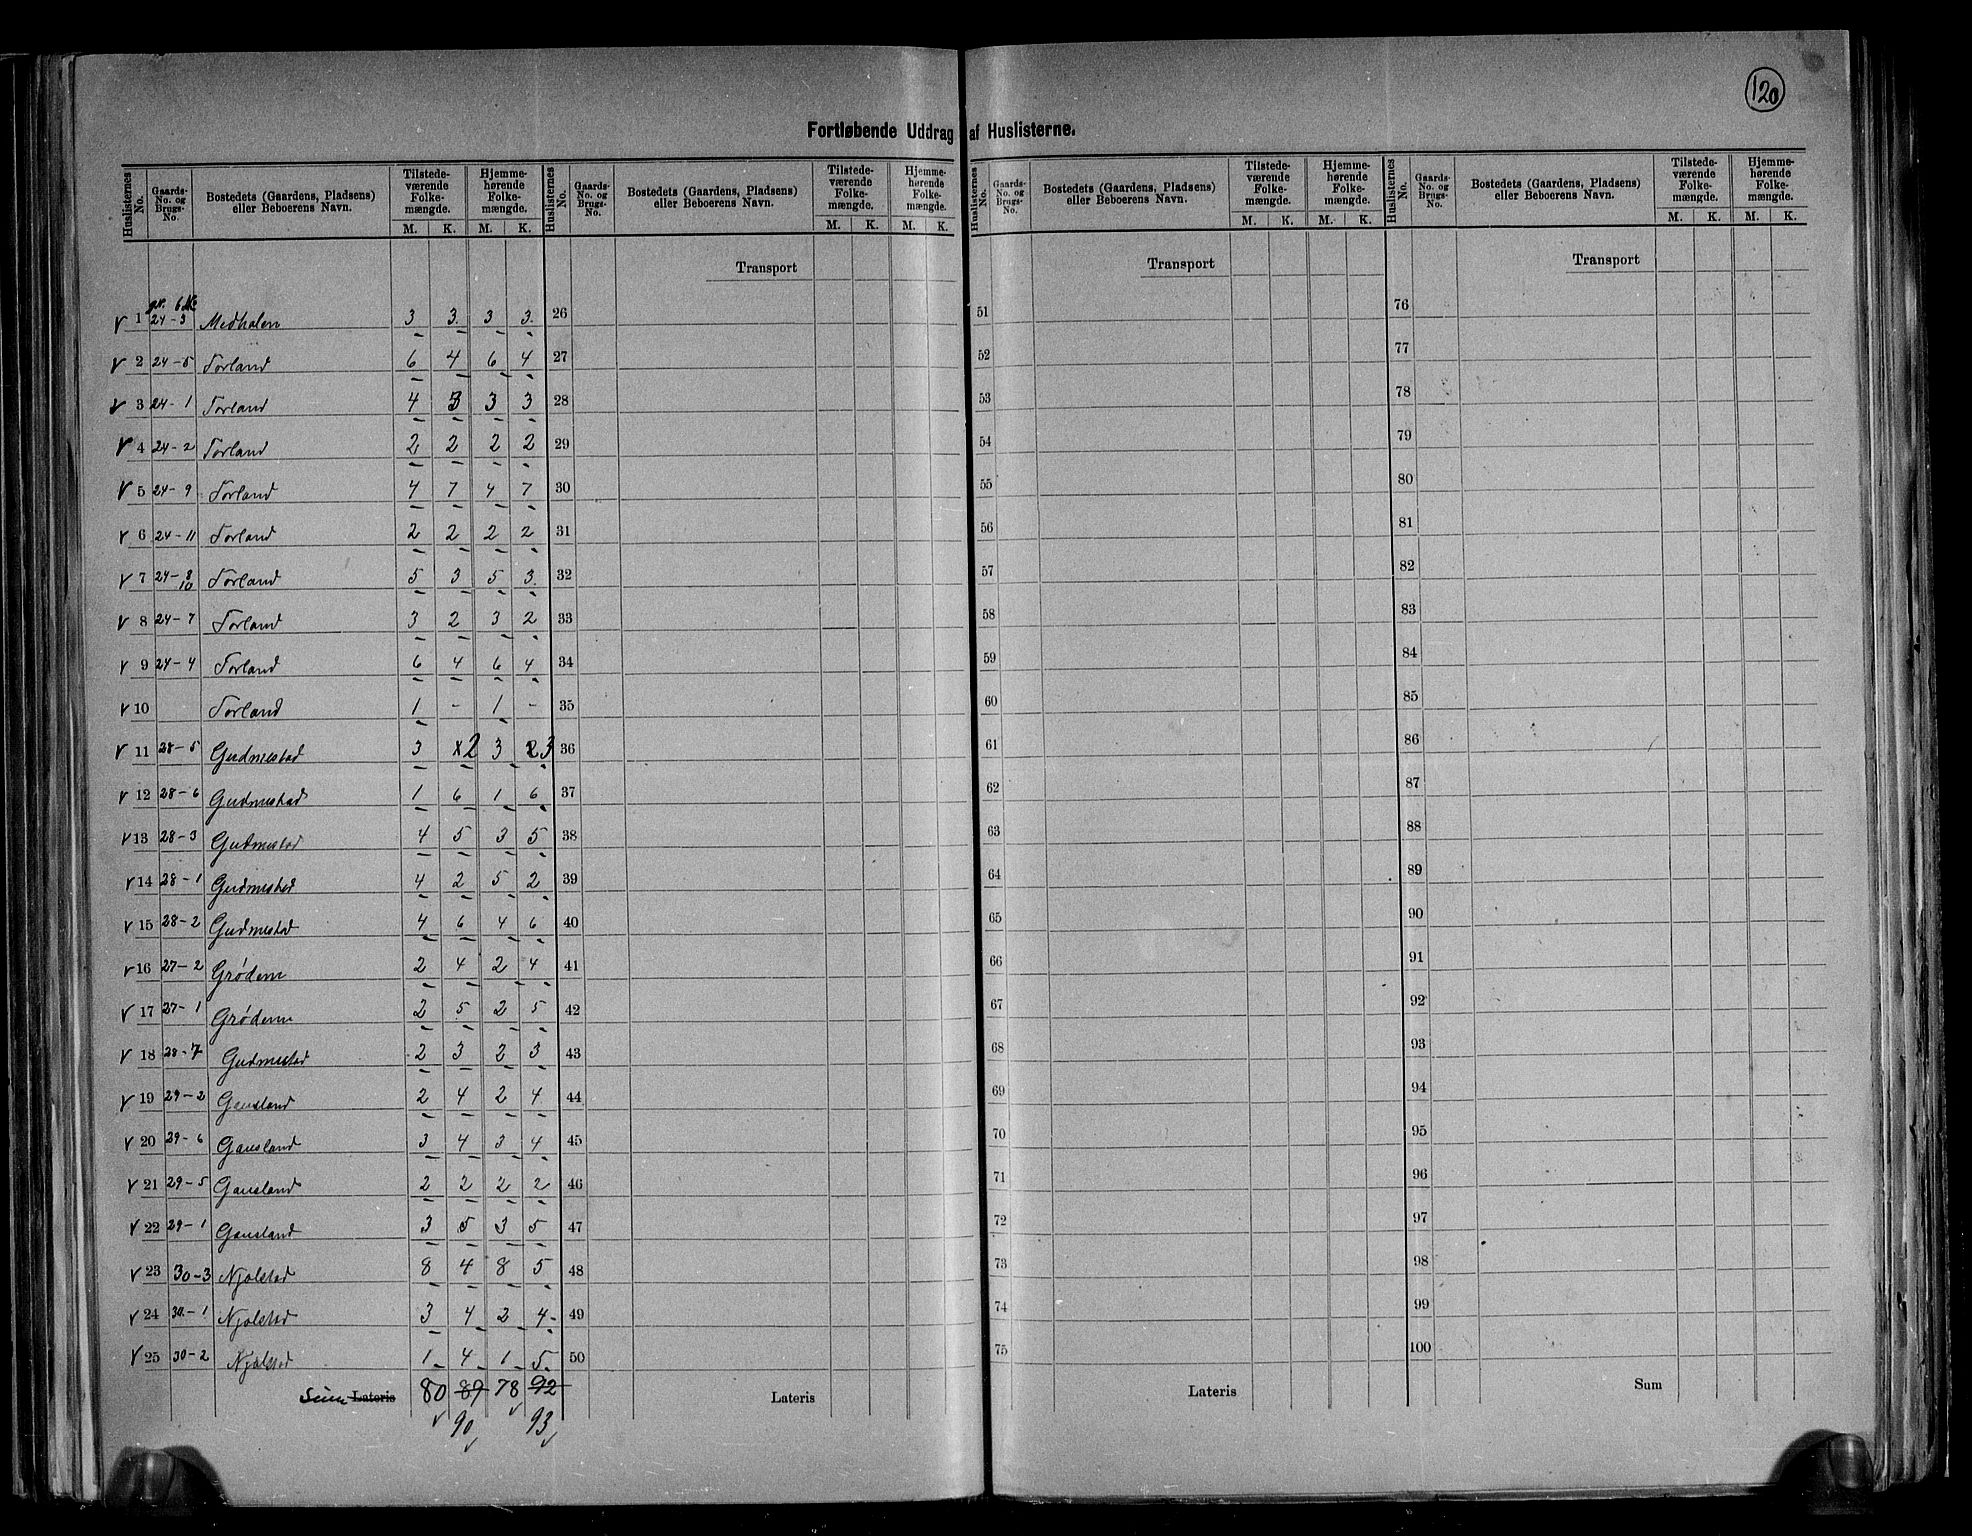 120
Fortløbende Uddrag af Huslisterne.
Huslisternes No. | Gaards-No. og Brugs-No. | Bostedets (Gaardens, Pladsens) eller Beboerens Navn. | Tilstedeværende Folkemængde. M. K. | Hjemmehørende Folkemængde. M. K.
Huslisternes No. | Gaards-No. og Brugs-No. | Bostedets (Gaardens, Pladsens) eller Beboerens Navn. | Tilstedeværende Folkemængde. M. K. | Hjemmehørende Folkemængde. M. K.
Huslisternes No. | Gaards-No. og Brugs-No. | Bostedets (Gaardens, Pladsens) eller Beboerens Navn. | Tilstedeværende Folkemængde. M. K. | Hjemmehørende Folkemængde. M. K.
Huslisternes No. | Gaards-No. og Brugs-No. | Bostedets (Gaardens, Pladsens) eller Beboerens Navn. | Tilstedeværende Folkemængde. M. K. | Hjemmehørende Folkemængde. M. K.
Transport Transport Transport
1 24-3 Medhalen 3 3 3 3 26 51 76
2 24-5 Torland 6 4 6 4 27 52 77
3 24-1 Torland 4 3 3 3 28 53 78
4 24-2 Torland 2 2 2 2 29 54 79
5 24-9 Torland 4 7 4 7 30 55 80
6 24-11 Torland 2 2 2 2 31 56 81
7 24-8 10 Torland 5 3 5 3 32 57 82
8 24-7 Torland 3 2 3 2 33 58 83
9 24-4 Torland 6 4 6 4 34 59 84
10 Torland 1 - 1 - 35 60 85
11 28-5 Gudmestad 3 2 3 3 36 61 86
12 28-6 Gudmestad 1 6 1 6 37 62 87
13 28-3 Gudmestad 4 5 3 5 38 63 88
14 28-1 Gudmestad 4 2 5 2 39 64 89
15 28-2 Gudmestad 4 6 4 6 40 65 90
16 27-2 Grødem 2 4 2 4 41 66 91
17 27-1 Grødem 2 5 2 5 42 67 92
18 28-7 Gudmestad 2 3 2 3 43 68 93
19 29-2 Gausland 2 4 2 4 44 69 94
20 29-6 Gausland 3 4 3 4 45 70 95
21 29-5 Gausland 2 2 2 2 46 71 96
22 29-1 Gausland 3 5 3 5 47 72 97
23 30-3 Njølstad 8 4 8 5 48 73 98
24 30-1 Njølstad 3 4 2 4 49 74 99
25 30-2 Njølstad 1 4 1 5 50 75 100
Sum Lateris 80 89 78 92 Lateris Lateris Sum
90 93